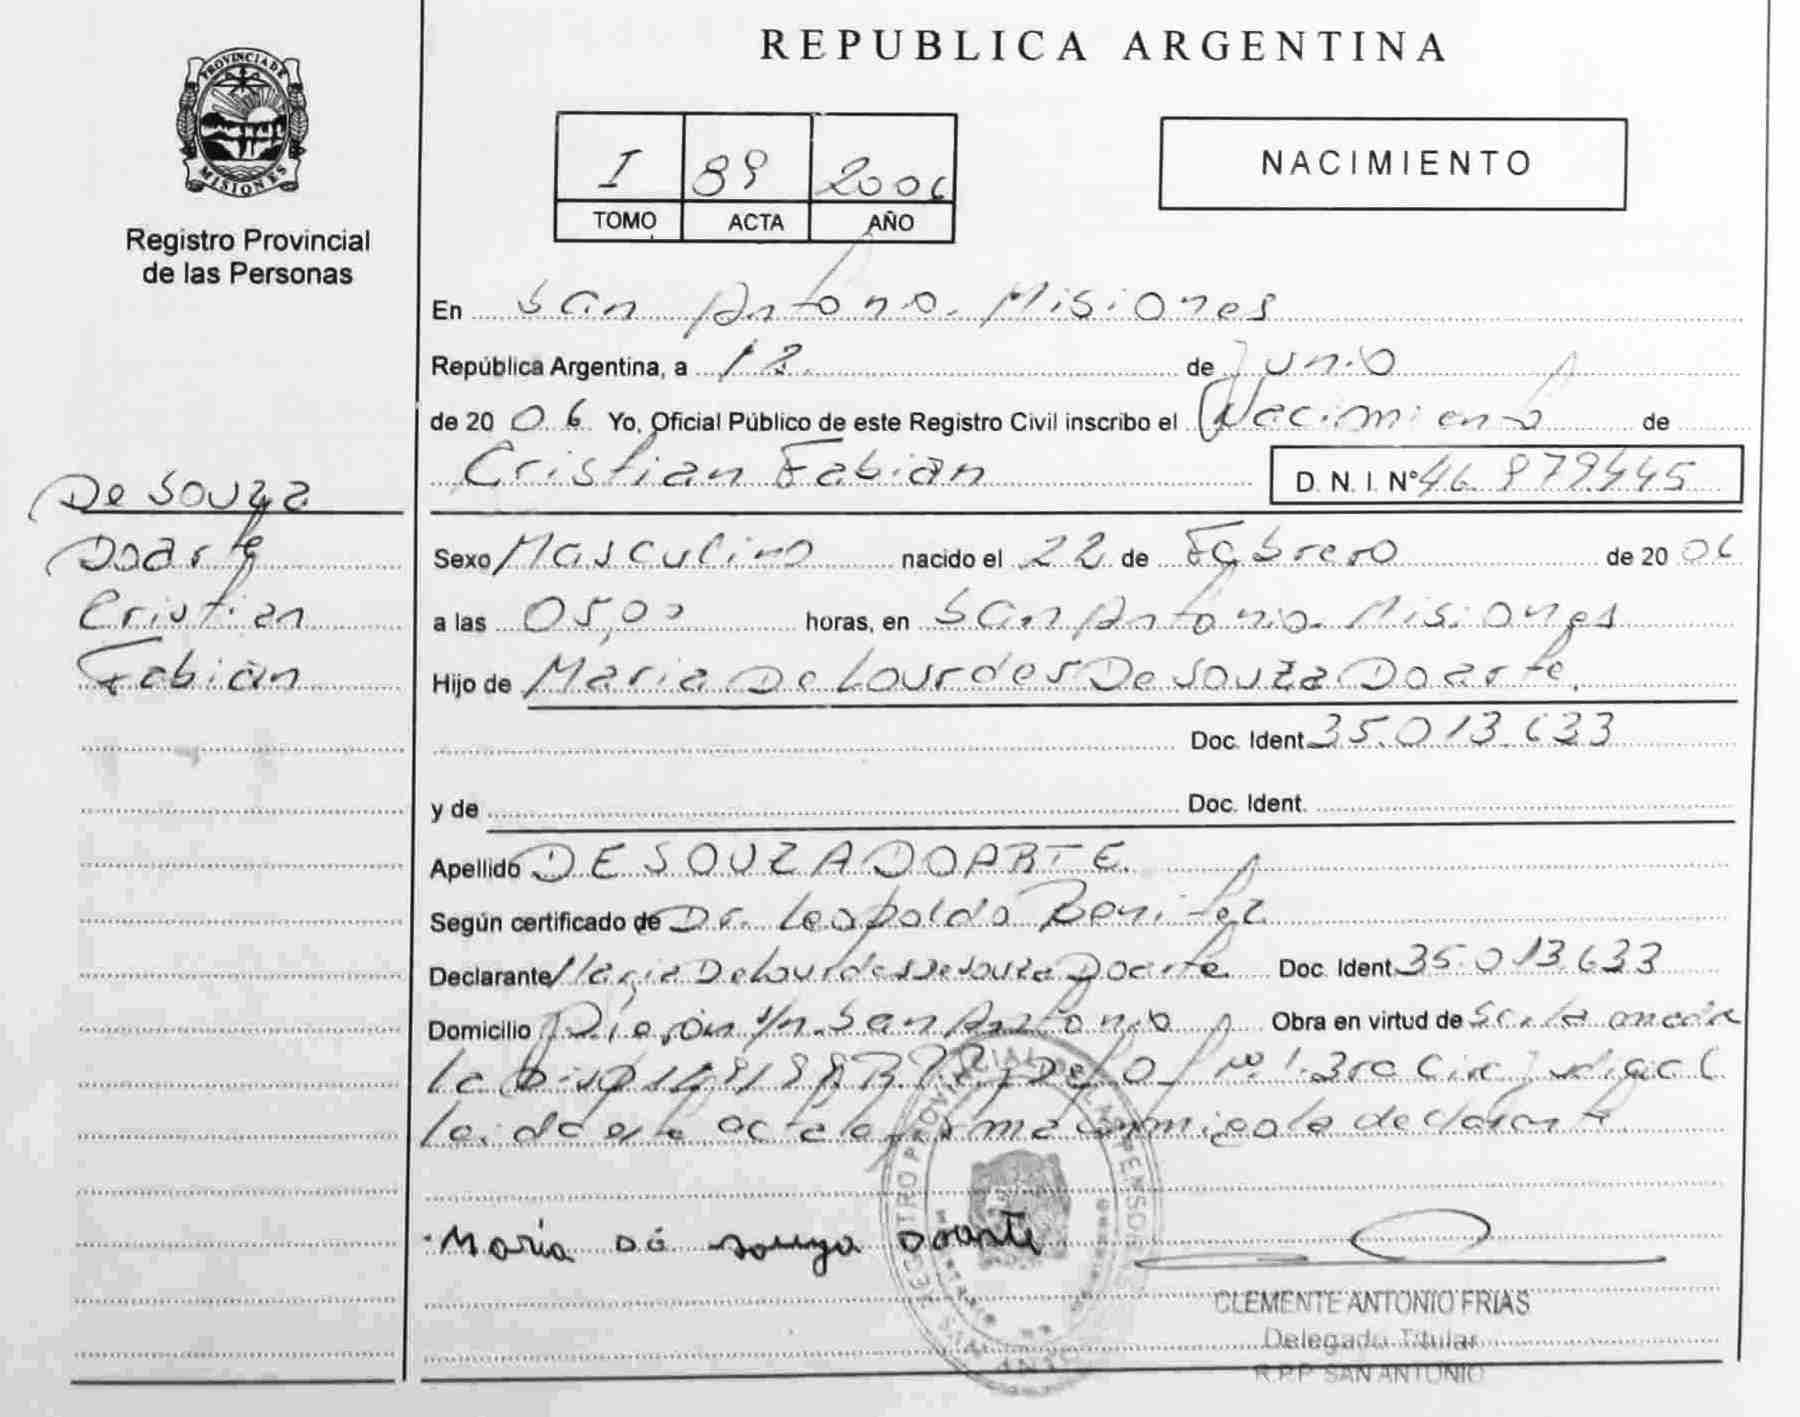 REPUBLICA ARGENTINA
PROVINCIA DE
MISIONES
Registro Provincial
de las Personas
I 89 2006
TOMO ACTA AÑO
NACIMIENTO
En San Antonio. Misiones
República Argentina, a 12 de Junio
de 20 06 Yo, Oficial Público de este Registro Civil inscribo el Nacimiento de
Cristian Fabian D. N. I. Nº 46.979.445
De Souza
Doarte
Cristian
Fabian
Sexo Masculino nacido el 22 de Febrero de 20 06
a las 05,00 horas, en San Antonio. Misiones
Hijo de Maria De Lourdes De Souza Doarte.
Doc. Ident. 35.013.633
y de Doc. Ident.
Apellido DE SOUZA DOARTE.
Según certificado de Dr. Leopoldo Benitez
Declarante Maria De Lourdes De Souza Doarte Doc. Ident. 35.013.633
Domicilio s/n. San Antonio Obra en virtud de
Nº 1. 3ra Circ Judicial
Leida el acta la firma conmigo la declarante.
Maria de souza Doarte
CLEMENTE ANTONIO FRIAS
Delegado Titular
R.P.P. SAN ANTONIO